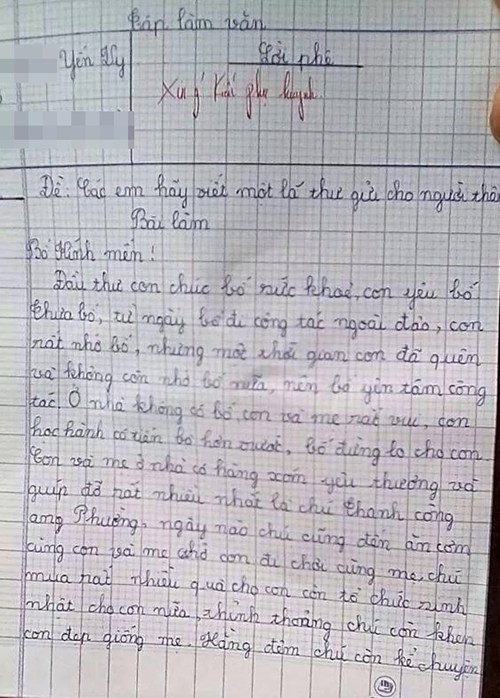 Tập làm văn
Yến Vy
Lời phê
Xin ý kiến phụ huynh.
Đề: Các em hãy viết một lá thư gửi cho người thân
Bài làm
Bố kính mến!
Đầu thư con chúc bố sức khoẻ, con yêu bố
Thưa bố, từ ngày bố đi công tác ngoài đảo, con
rất nhớ bố, nhưng một thời gian con đã quên
và không còn nhớ bố nữa, nên bố yên tâm công
tác. Ở nhà không có bố, con và mẹ rất vui, con
học hành có tiến bộ hơn trước, bố đừng lo cho con.
Con và mẹ ở nhà có hàng xóm yêu thương và
giúp đỡ rất nhiều nhất là chú Thanh công
ang Phường, ngày nào chú cũng đến ăn cơm
cùng con và mẹ chở con đi chơi cùng mẹ, chú
mua rất nhiều quà cho con còn tổ chức sinh
nhật cho con nữa, thỉnh thoảng chú còn khen
con đẹp giống mẹ. Hằng đêm chú còn kể chuyện